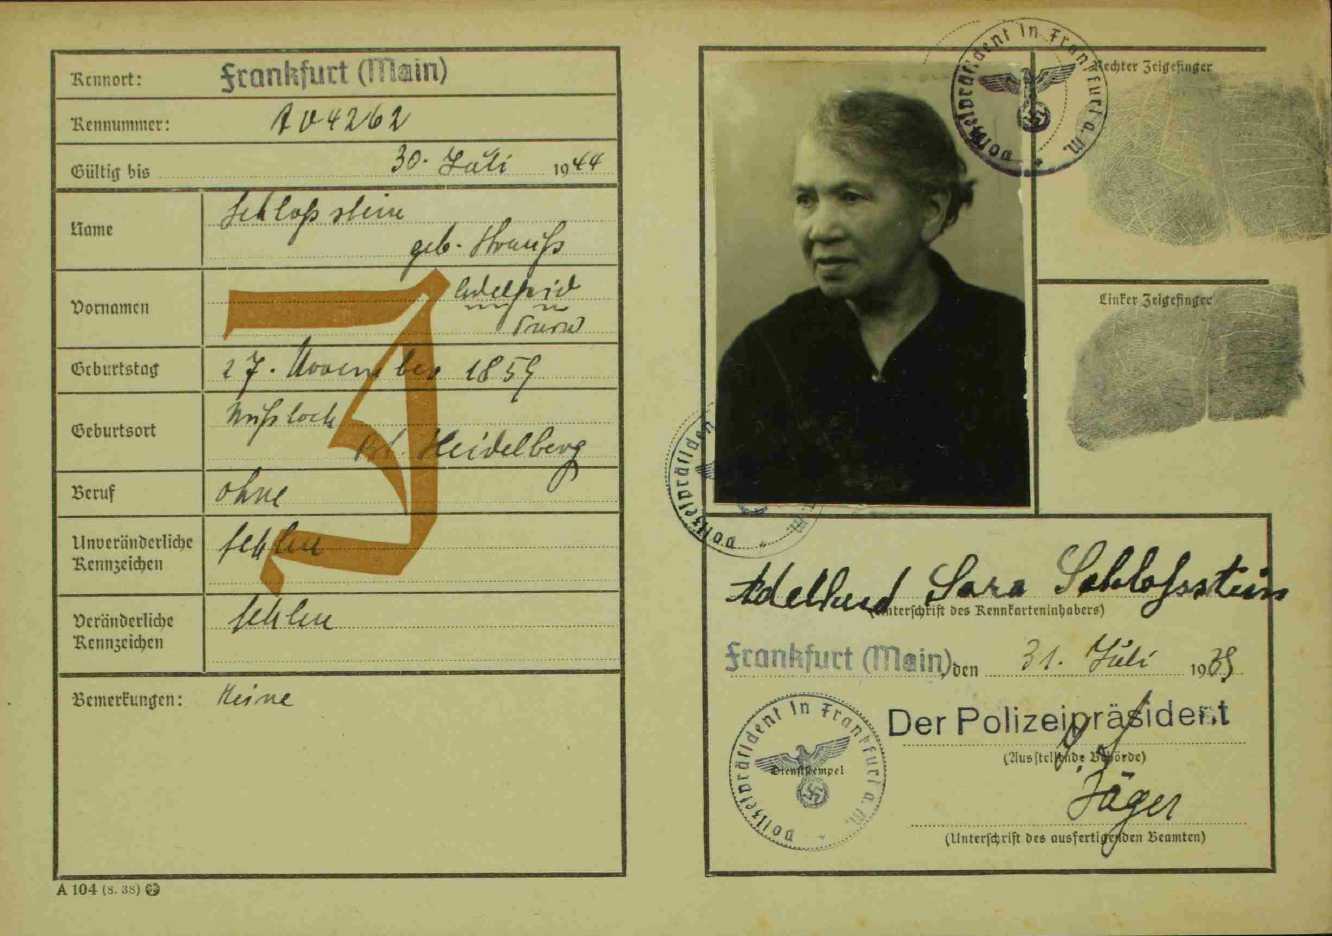 Kennort: Frankfurt (Main)
Kennummer: A 04262
Gültig bis 30. Juli 1944
Name Schloßstein
geb. Strauß
Vornamen Adelheid
Sara
Geburtstag 27. November 1859
Geburtsort Nußloch
Heidelberg
Beruf ohne
Unveränderliche fehlen
Kennzeichen
Veränderliche fehlen
Kennzeichen
Bemerkungen: Keine
J
A 104 (8. 38)
Polizeipräsident in Frankfurt a. M.
Rechter Zeigefinger
Linker Zeigefinger
Polizeipräsident
Adelheid Sara Schloßstein
(Unterschrift des Kennkarteninhabers)
Frankfurt (Main), den 31. Juli 1939
Der Polizeipräsident
(Ausstellende Behörde)
Polizeipräsident in Frankfurt a. M.
Dienststempel
Jäger
(Unterschrift des ausfertigenden Beamten)